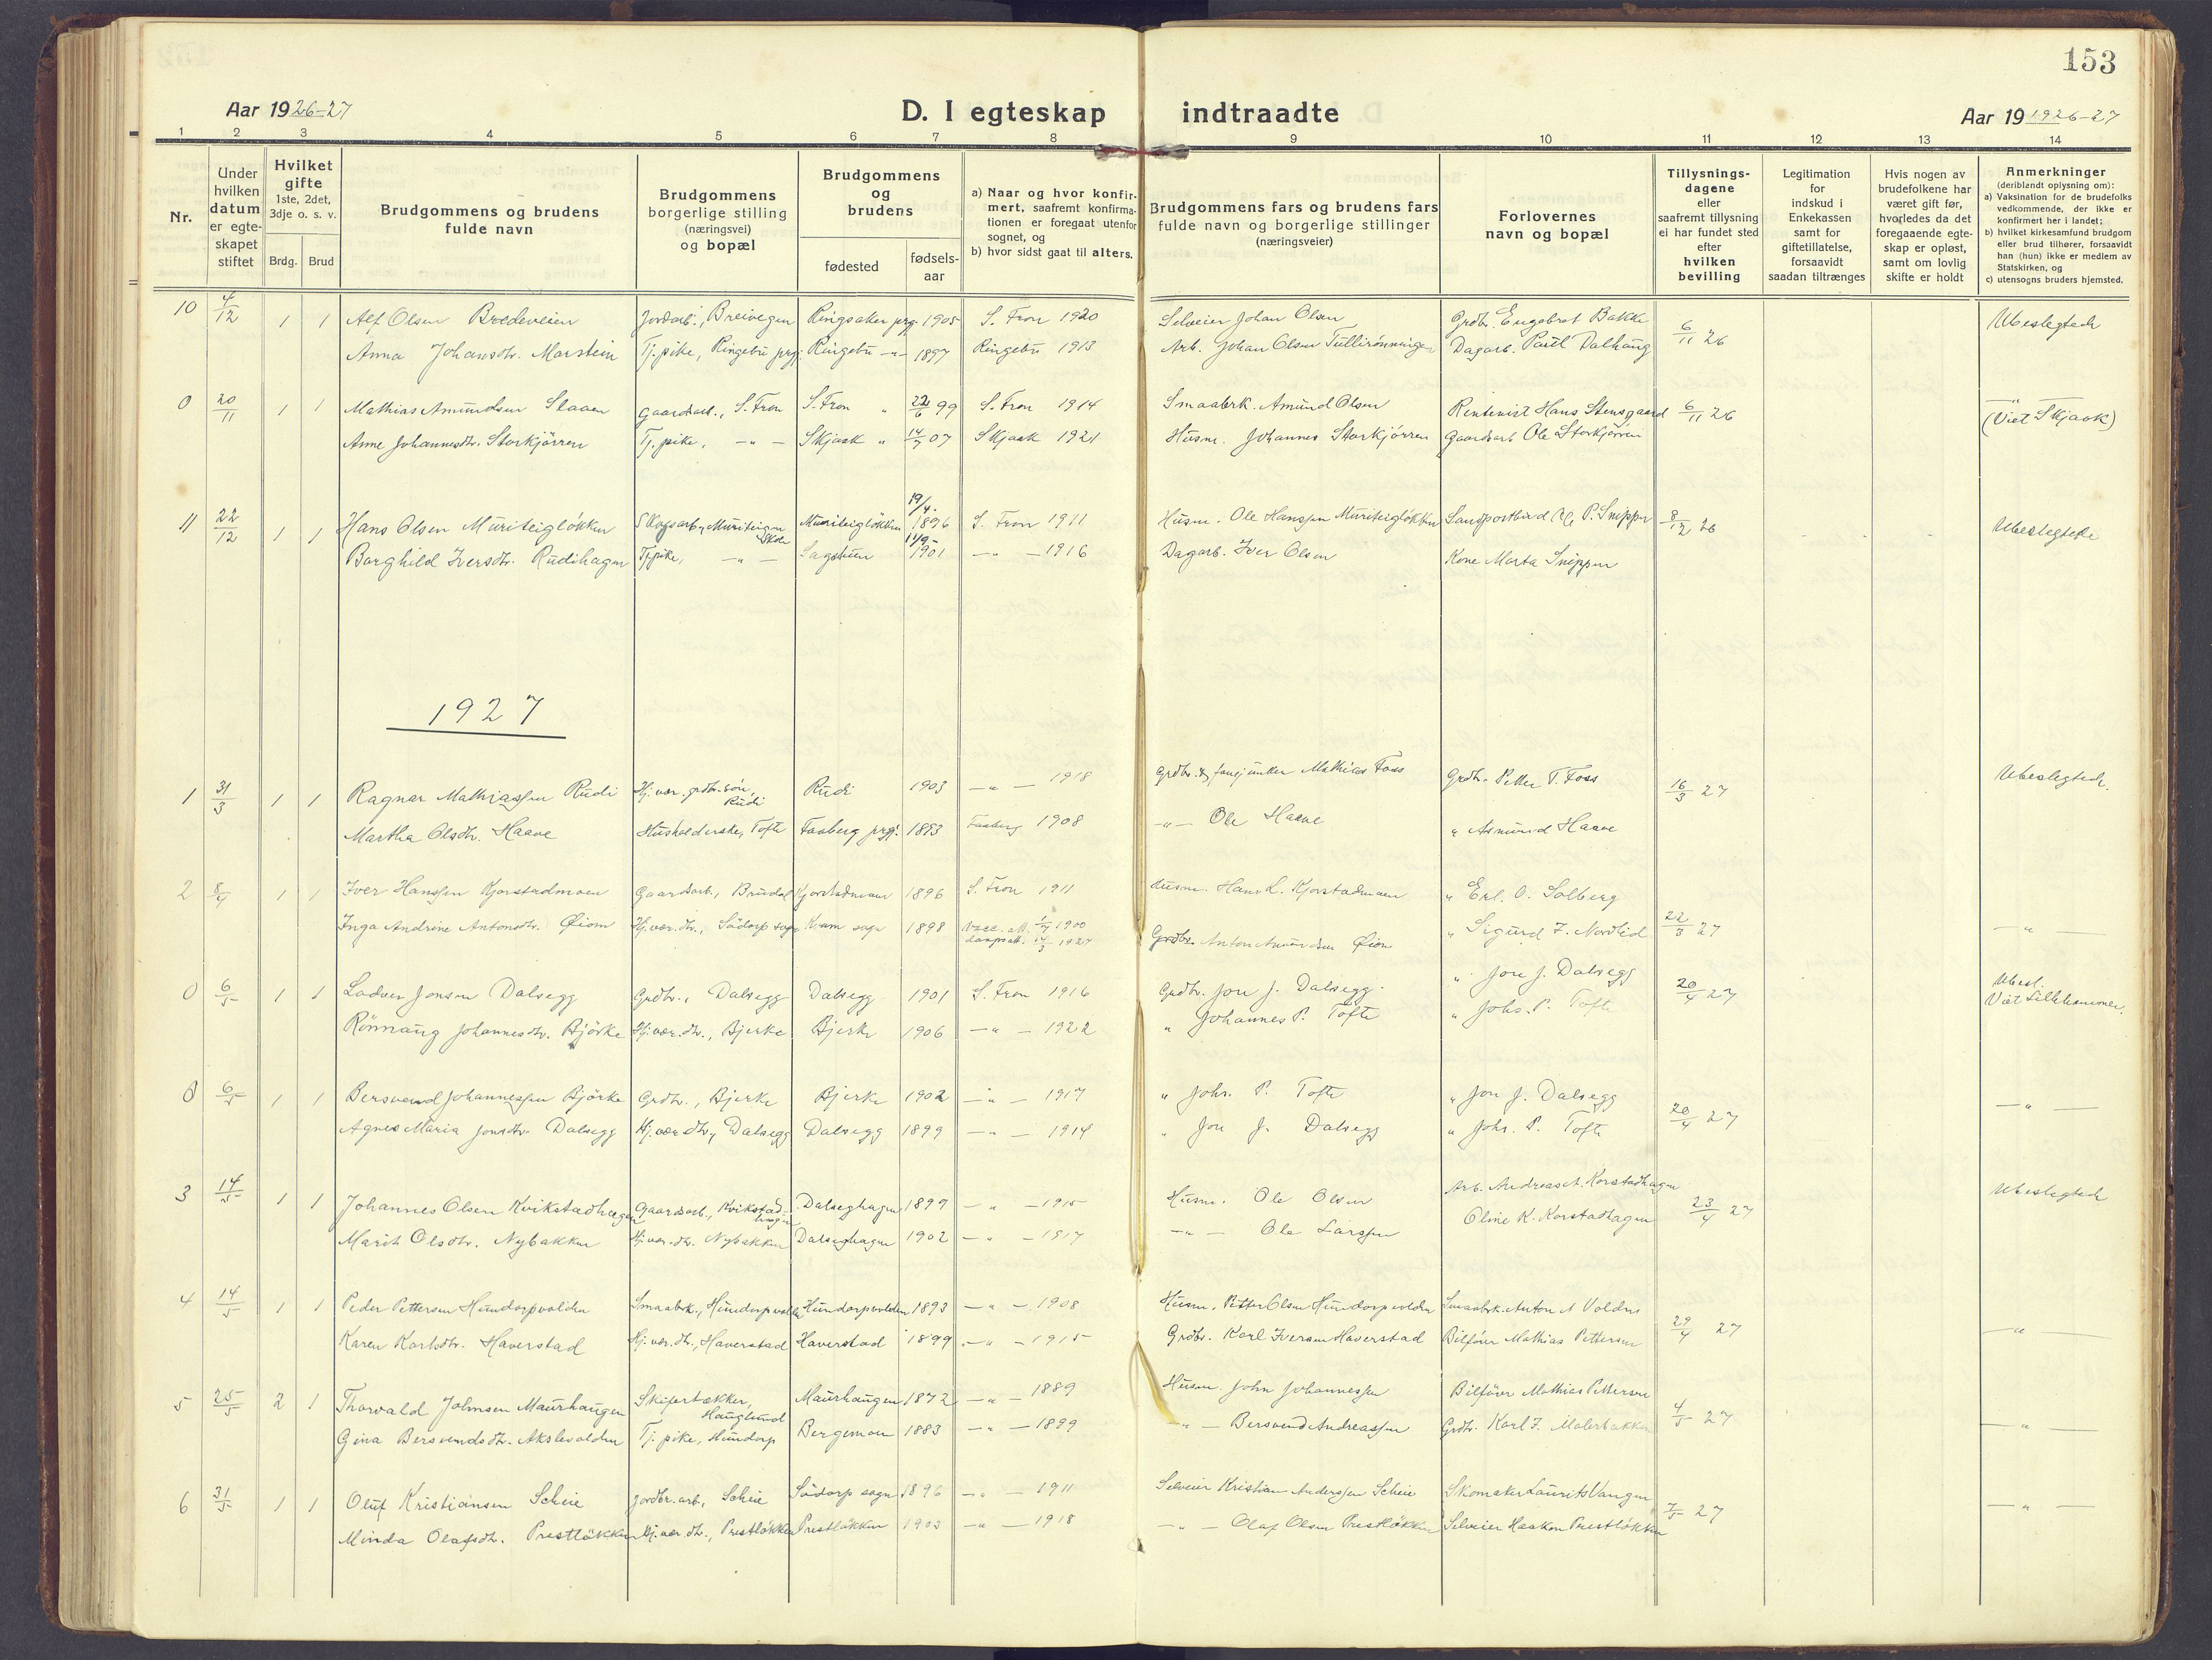 153
Aar 1926-27
D. I egteskap indtraadte
Aar 19 1926-27
1 2 3 4 5 6 7 8 9 10 11 12 13 14
Nr.
Under hvilken datum er egte-skapet stiftet
Hvilket gifte 1ste, 2det, 3dje o. s. v.
Brdg. Brud
Brudgommens og brudens fulde navn
Brudgommens borgerlige stilling (næringsvei) og bopæl
Brudgommens og brudens
fødested
fødsels-aar
a) Naar og hvor konfir-mert, saafremt konfirma-tionen er foregaat utenfor sognet, og
b) hvor sidst gaat til alters.
Brudgommens fars og brudens fars fulde navn og borgerlige stillinger (næringsveier)
Forlovernes navn og bopæl
Tillysnings-dagene eller saafremt tillysning ei har fundet sted efter hvilken bevilling
Legitimation for indskud i Enkekassen samt for giftetillatelse, forsaavidt saadan tiltrænges
Hvis nogen av brudefolkene har været gift før, hvorledes da det foregaaende egte-skap er opløst, samt om lovlig skifte er holdt
Anmerkninger (deriblandt oplysning om):
a) Vaksination for de brudefolks vedkommende, der ikke er konfirmert her i landet;
b) hvilket kirkesamfund brudgom eller brud tilhører, forsaavidt han (hun) ikke er medlem av Statskirken, og
c) utensogns bruders hjemsted.
10 4/12 1 1 Alf Olsen Bredeveien Jordarb., Breivegen Ringsaker prg. 1905 S. Fron 1920 Selveier Johan Olsen Grdbr. Engebret Bakke 6/11 26 Ubeslegtede
Anna Johansdtr. Marstein Tj.pike, Ringebu prgj. Ringebu -"- 1897 Ringebu 1913 Arb. Johan Olsen Tullirönningen Dagarb. Paul Dalhaug
0 20/11 1 1 Mathias Amundsen Slaaen Gaardsarb., S. Fron S. Fron " 22/6 99 S. Fron 1914 Smaabrk. Amund Olsen Rentenist Hans Stensgaard 6/11 26 -"-
Anne Johannesdtr. Storkjörren Tj.pike, -"- Skjaak " 14/7 07 Skjaak 1921 Husm. Johannes Storkjörren Gaardsarb Ole Storkjörren (Viet Skjaak)
11 22/12 1 1 Hans Olsen Muriteiglökken Skogsarb., Muriteigen Muriteiglökken 19/4. 1896 S. Fron 1911 Husm. Ole Hanssen Muriteiglökken Landpostbud P. Snippen 8/12 26 Ubeslegtede
Borghild Iversdtr. Rudihagen Tj.pike, -"- Sagstuen 11/9- 1901 -"- 1916 Dagarb. Iver Olsen Kone Marta Snippen
1927
1 31/3 1 1 Ragnar Mathiassen Rudi Hj.vær. grdbr.sön, Rudi Rudi 1903 -"- 1918 Grdbr. & fanejunker Mathias Foss Grdbr. Petter T. Foss 16/3 27 Ubeslegtede.
Martha Olsdtr. Haave Husholderske, Tofte Faaberg prgj. 1893 Faaberg 1908 -"- Ole Haave " Asmund Haave
2 8/4 1 1 Iver Hanssen Kjorstadmoen Gaardsarb., Brudal Kjorstadmoen 1896 S. Fron 1911 Husm. Hans L. Kjorstadmoen " Erl. O. Solberg
Inga Andrine Antonsdtr. Øiom Hj.vær.dtr., Södorp sogn Kvam sogn 1898 Vacc. att. 1/7 1900 Grdbr. Anton Amundsen Øiom " Sigurd Z. Nordlid 22/3 27 -"-
daapsatt. 14/3 1927
0 6/5 1 1 Ladver Jonsen Dalsegg Grdbr., Dalsegg Dalsegg 1901 S. Fron 1916 Grdbr. Jon J. Dalsegg. " Jon J. Dalsegg 20/4 27 Ubesl.
Rönnaug Johannesdtr. Björke Hj.vær.dtr., Bjerke Bjerke 1906 -"- 1922 " Johannes P. Tofte " Johs. P. Tofte Viet Lillehammer.
0 6/5 1 1 Bersvend Johannessen Björke Grdbr., Bjerke Bjerke 1902 -"- 1917 " Johs. P. Tofte " Jon J. Dalsegg 20/4 27 -"-
Agnes Maria Jonsdtr. Dalsegg Hj.vær.dtr., Dalsegg Dalsegg 1899 -"- 1914 " Jon J. Dalsegg " Johs. P. Tofte
3 14/5 1 1 Johannes Olsen Kvikstadhagen Gaardsarb., Kvikstad-hagen Dalseghagen 1897 -"- 1915 Husm. Ole Olsen Arb. Andreas A. Korstadhagen 23/4 27 Ubeslegtede
Marit Olsdtr. Nybakken Hj.vær.dtr. Nybakken Dalseghagen 1902 -"- 1917 -"- Ole Larssen Oline K. Korstadhagen
4 14/5 1 1 Peder Pettersen Hundorpvolden Smaabrk., Hundorpvolden Hundorpvolden 1893 -"- 1908 Husm. Petter Olsen Hundorpvolden Smaabrk. Anton N Volden 29/4 27 -"-
Karen Karlsdtr. Haverstad Hj.vær.dtr., Haverstad Haverstad 1899 -"- 1915 Grdbr. Karl Iversen Haverstad Bilfører Mathias Pettersen
5 25/5 2 1 Thorvald Johnsen Maurhaugen Skifertækker, Hauglund Maurhaugen 1872 -"- 1889 Husm. John Johannessen Bilfører Mathias Pettersen 4/5 27 -"-
Gina Bersvendsdtr. Akslevolden Tj.pike, Hundorp Bergemoen 1883 -"- 1899 -"- Bersvend Andreassen Grdbr. Karl I. Malerbakken
6 31/5 1 1 Oluf Kristiansen Scheie Jordbr.arb., Scheie Södorp sogn 1896 -"- 1911 Selveier Kristian Anderssen Scheie Skomaker Laurits Vangen 7/5 27 -"-
Minda Olafsdtr. Prestløkken Hj.vær.dtr., Prestløkken Prestløkken 1903 -"- 1918 -"- Olaf Olsen Prestløkken Selveier Haakon Prestløkken